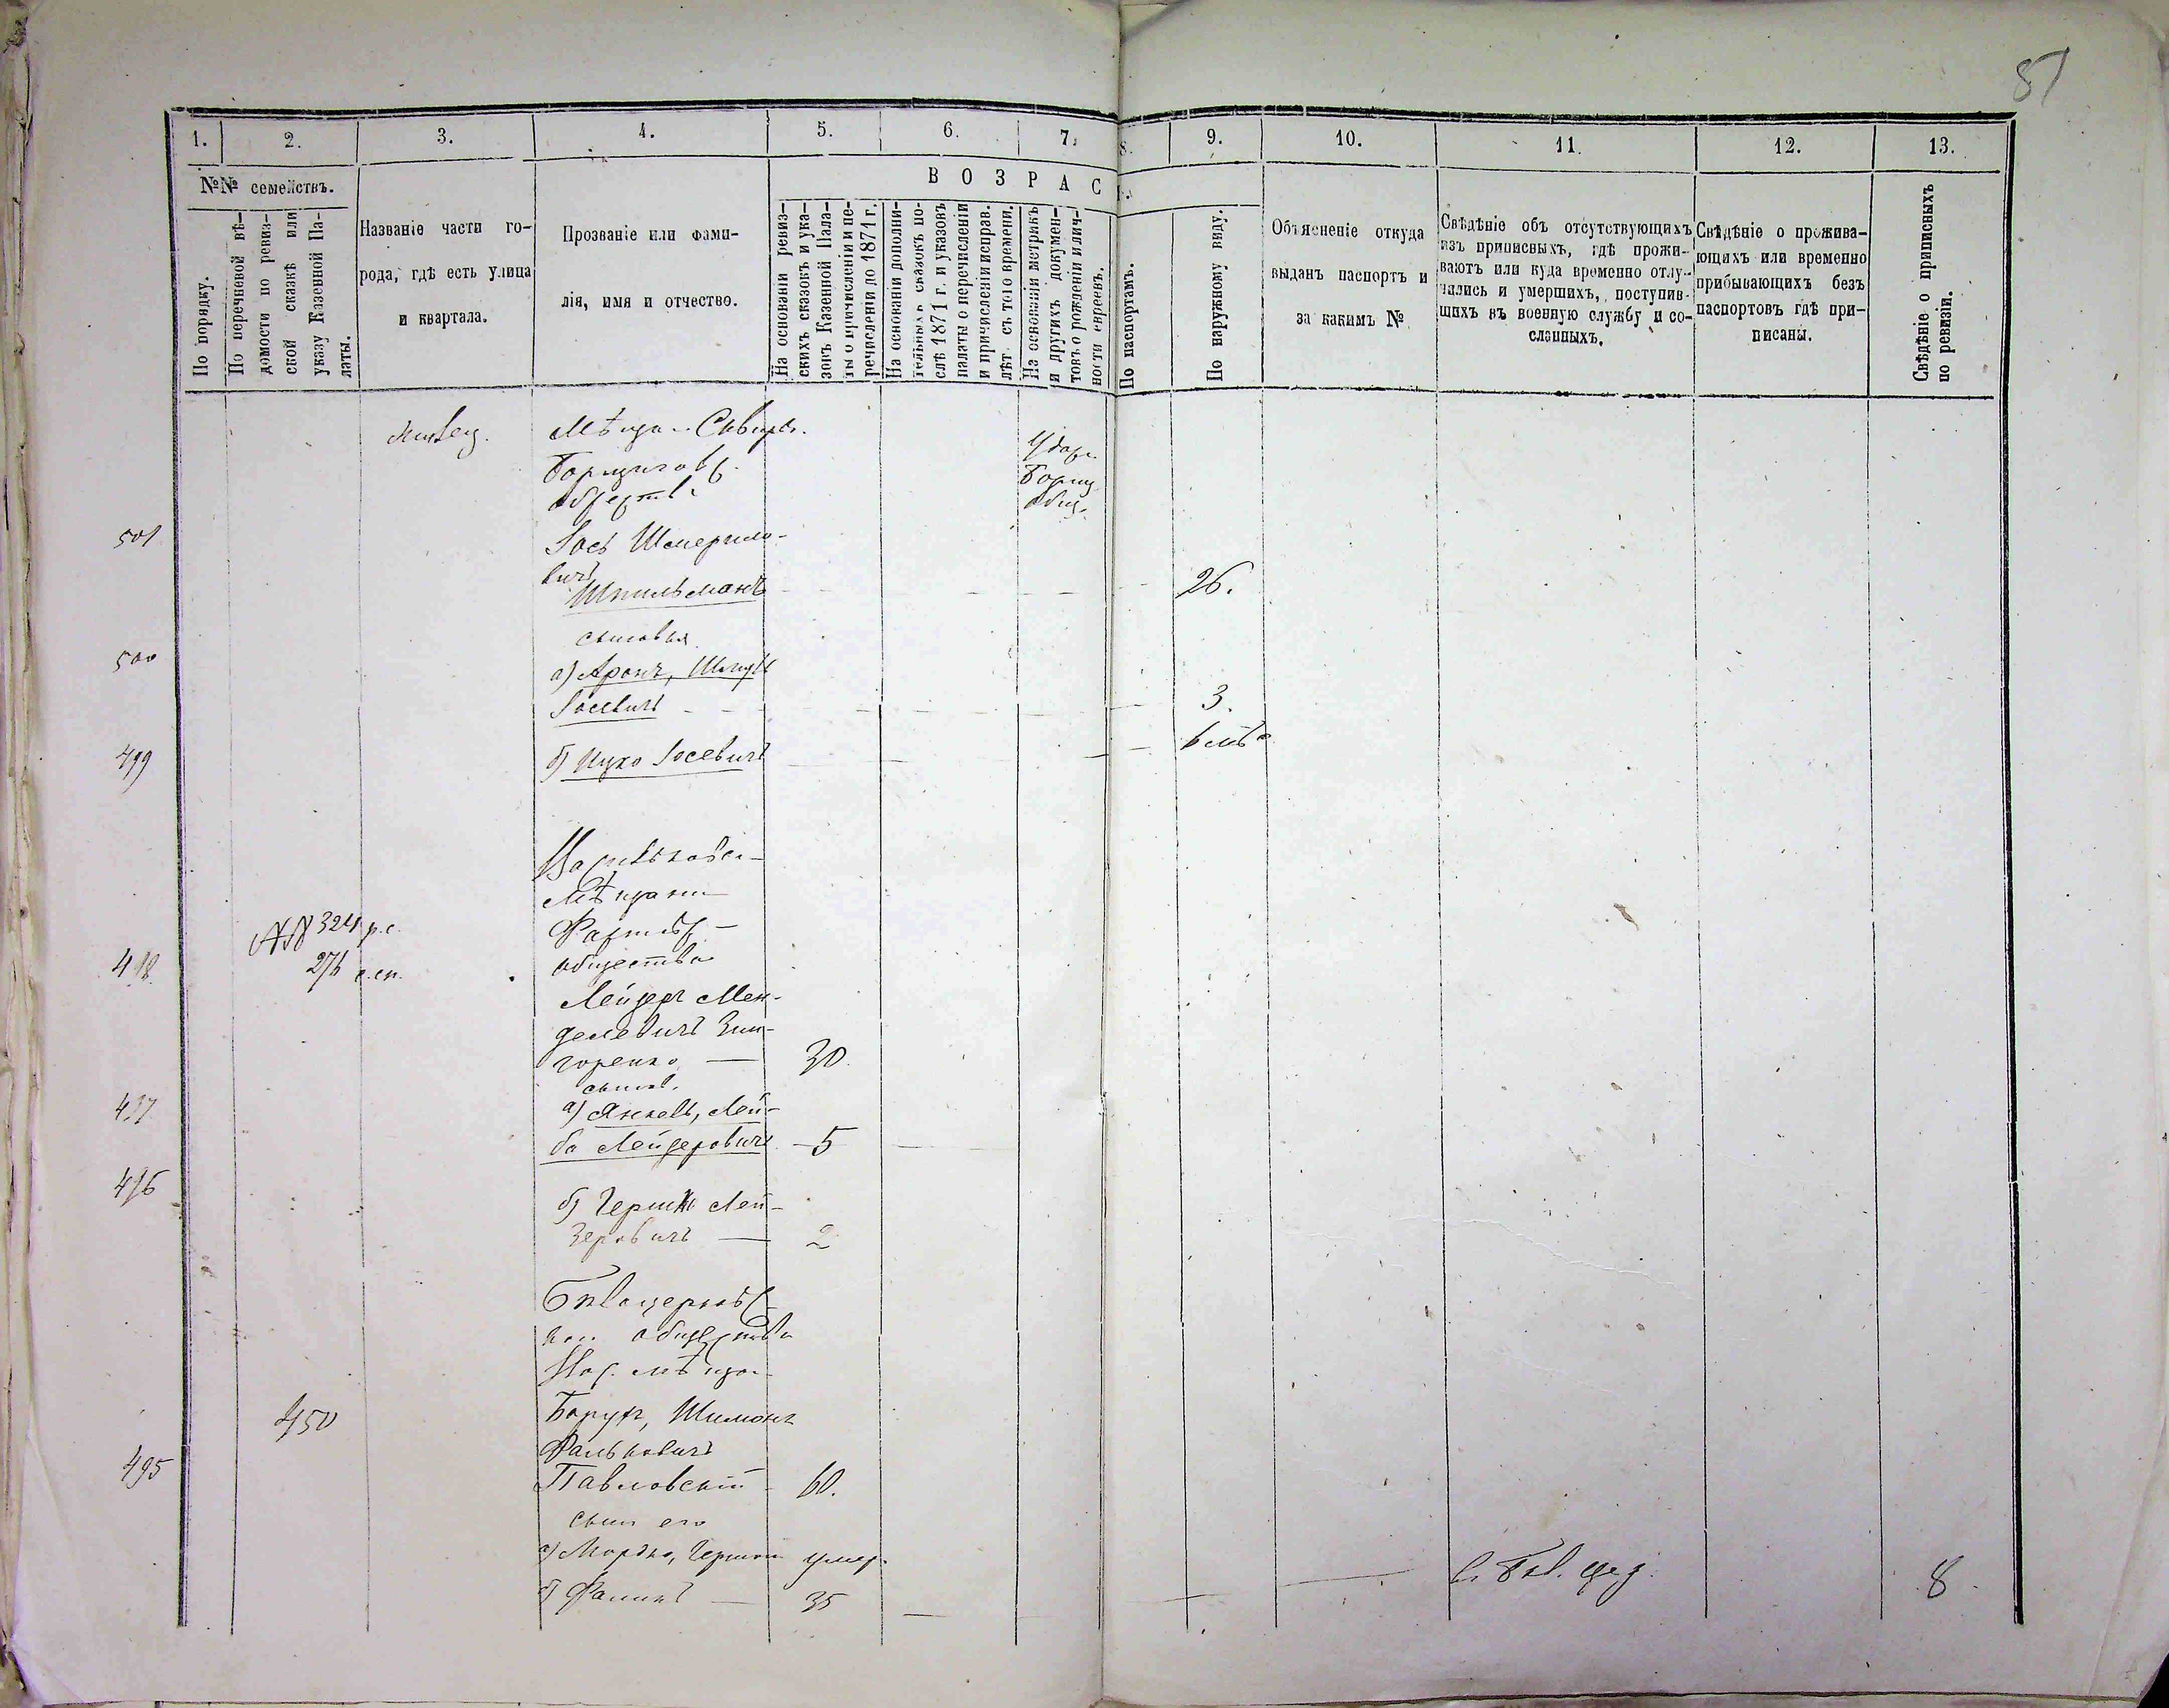 51
1. 2. 3. 4. 5. 6. 7. 8. 9. 10. 11. 12. 13.
№№ семействъ.
В О З Р А С
По порядку.
По перечневой вѣ-
домости по ревиз-
ской сказкѣ или
указу Казенной Па-
латы.
Названіе части го-
рода, гдѣ есть улица
и квартала.
Прозваніе или фами-
лія, имя и отчество.
На основаніи ревиз-
скихъ сказокъ и ука-
зовъ Казенной Пала-
ты о причисленіи и пе-
речисленіи до 1871 г.
На основаніи дополни-
тельныхъ сказокъ по-
слѣ 1871 г. и указовъ
палаты о перечисленіи
и причисленіи исправ.
лѣт съ того времени.
На основаніи метрикъ
и другихъ докумен-
товъ о рожденіи и лич-
ности евреевъ.
По паспортамъ.
По наружному виду.
Объясненіе откуда
выданъ паспортъ и
за какимъ №
Свѣдѣніе объ отсутствующихъ
изъ приписныхъ, гдѣ прожи-
ваютъ или куда временно отлу-
чались и умершихъ, поступив-
шихъ въ военную службу и со-
сланныхъ.
Свѣдѣніе о прожива-
ющихъ или временно
прибывающихъ безъ
паспортовъ гдѣ при-
писаны.
Свѣдѣніе о приписныхъ
по ревизіи.
Мѣщ. Сквирс.
Борщаговс.
обществ.
Борщ.
общ.
501
Іось Шмерило-
вичъ
Шпильманъ 26.
сыновья
500
а) Аронъ, Шмуль
Іосевичъ 3.
499
б) Ицко Іосевичъ
мѣщани
№№ 324 р. с.
276
общества
498
Лейзеръ Мен-
делевичъ Зин-
горенко 30.
сынов.
497
а) Янкель, Лей-
ба Лейзеровичъ 5
496
б) Гершко Лей-
зеровичъ 2
Бѣлоцерковс
общества
мѣщан
450
Борухъ, Шимонъ
Фальковичъ
495
Павловскій 60.
сын его
а) Мордко, Гершон умер.
б) 35
8